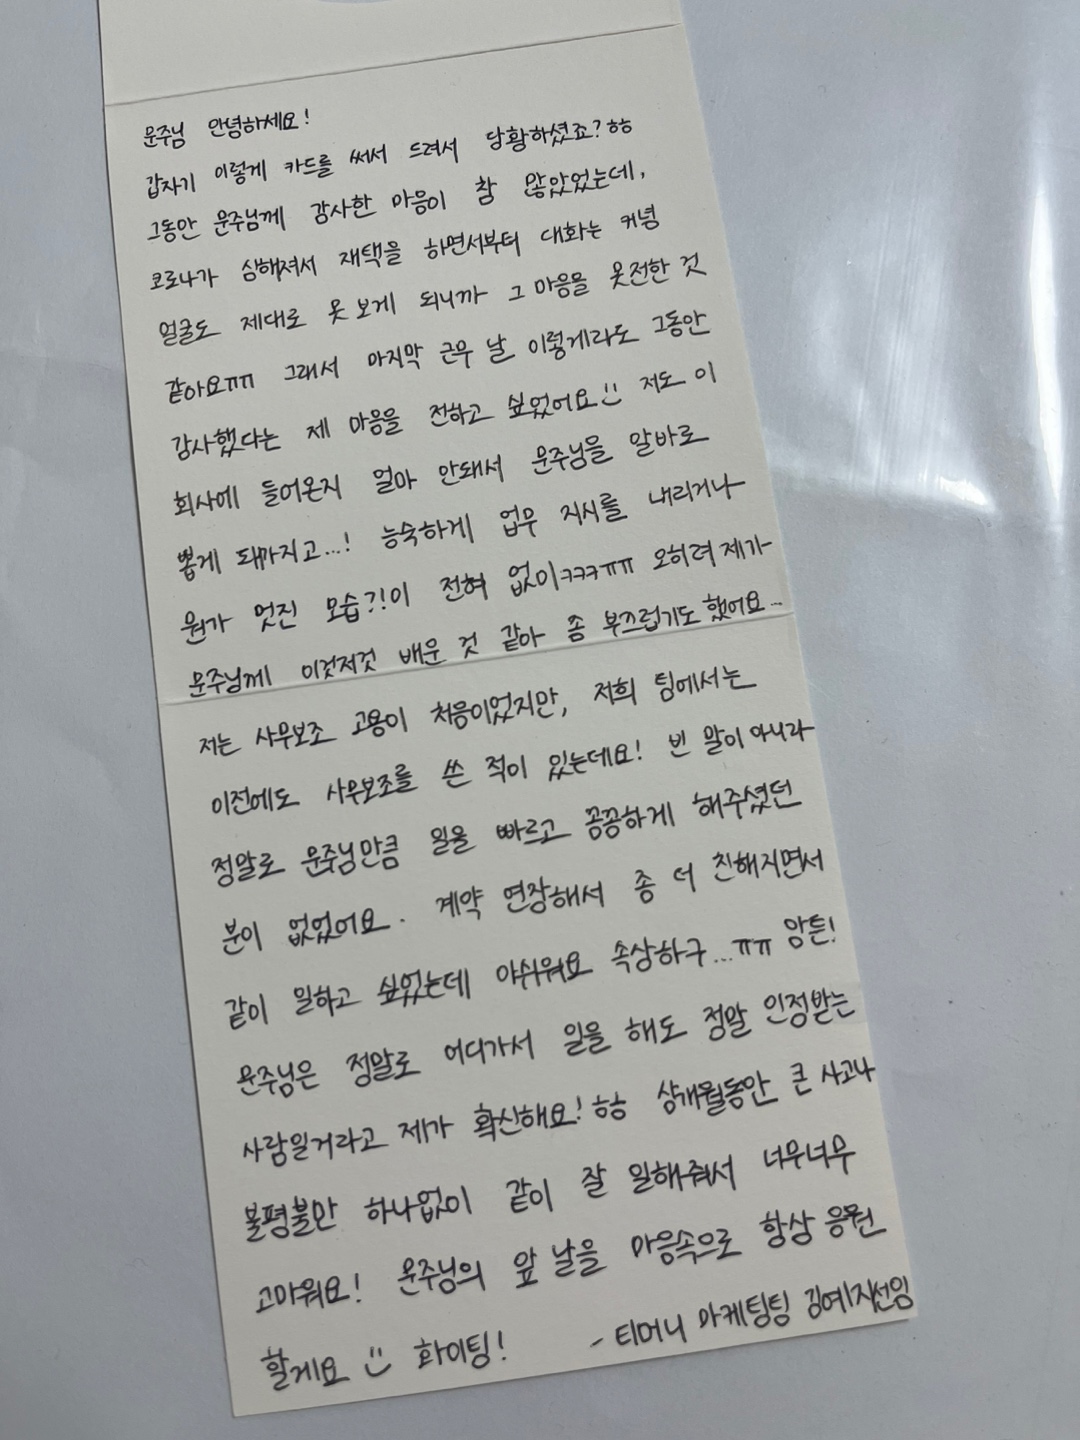 운주님 안녕하세요!
갑자기 이렇게 카드를 써서 드려서 당황하셨죠?ㅎㅎ
그동안 운주님께 감사한 마음이 참 많았었는데,
코로나가 심해져서 재택을 하면서부터 대화는 커녕
얼굴도 제대로 못 보게 되니까 그 마음을 못전한 것
같아요ㅠㅠ 그래서 마지막 근무 날 이렇게라도 그동안
감사했다는 제 마음을 전하고 싶었어요 저도 이
회사에 들어온지 얼마 안돼서 운주님을 알바로
뽑게 돼가지고...! 능숙하게 업무 지시를 내리거나
뭔가 멋진 모습?!이 전혀 없이ㅋㅋㅋㅠㅠ 오히려 제가
운주님께 이것저것 배운 것 같아 좀 부끄럽기도 했어요...
저는 사무보조 고용이 처음이었지만, 저희 팀에서는
이전에도 사무보조를 쓴 적이 있는데요! 빈 말이 아니라
정말로 운주님만큼 일을 빠르고 꼼꼼하게 해주셨던
분이 없었어요. 계약 연장해서 좀 더 친해지면서
같이 일하고 싶었는데 아쉬워요 속상하구...ㅠㅠ 암튼!
운주님은 정말로 어디가서 일을 해도 정말 인정받는
사람일거라고 제가 확신해요!ㅎㅎ 삼개월동안 큰 사고나
불평불만 하나없이 같이 잘 일해줘서 너무너무
고마워요! 운주님의 앞 날을 마음속으로 항상 응원
할게요 화이팅! - 티머니 마케팅팀 김예지선임